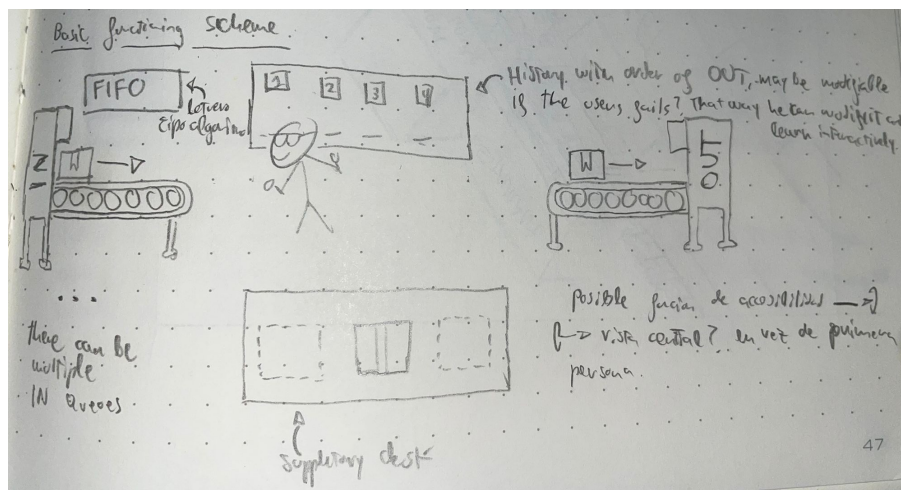 Basic functioning scheme
FIFO
Letrero
tipo algoritmo
1 2 3 4
History with order of OUT, may be modifiable
if the users fails? That way he can modify it and
learn interactively
IN
W
W
OUT
...
there can be
multiple
IN queues
Suppletory desk
Posible función de accesibilidad
vista central? en vez de primera
persona.
47